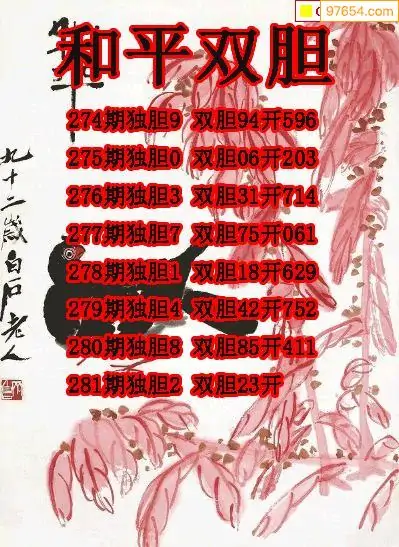 97654.com
和平双胆
274期独胆9 双胆94开596
275期独胆0 双胆06开203
276期独胆3 双胆31开714
277期独胆7 双胆75开061
278期独胆1 双胆18开629
279期独胆4 双胆42开752
280期独胆8 双胆85开411
281期独胆2 双胆23开
九十二歲白石老人